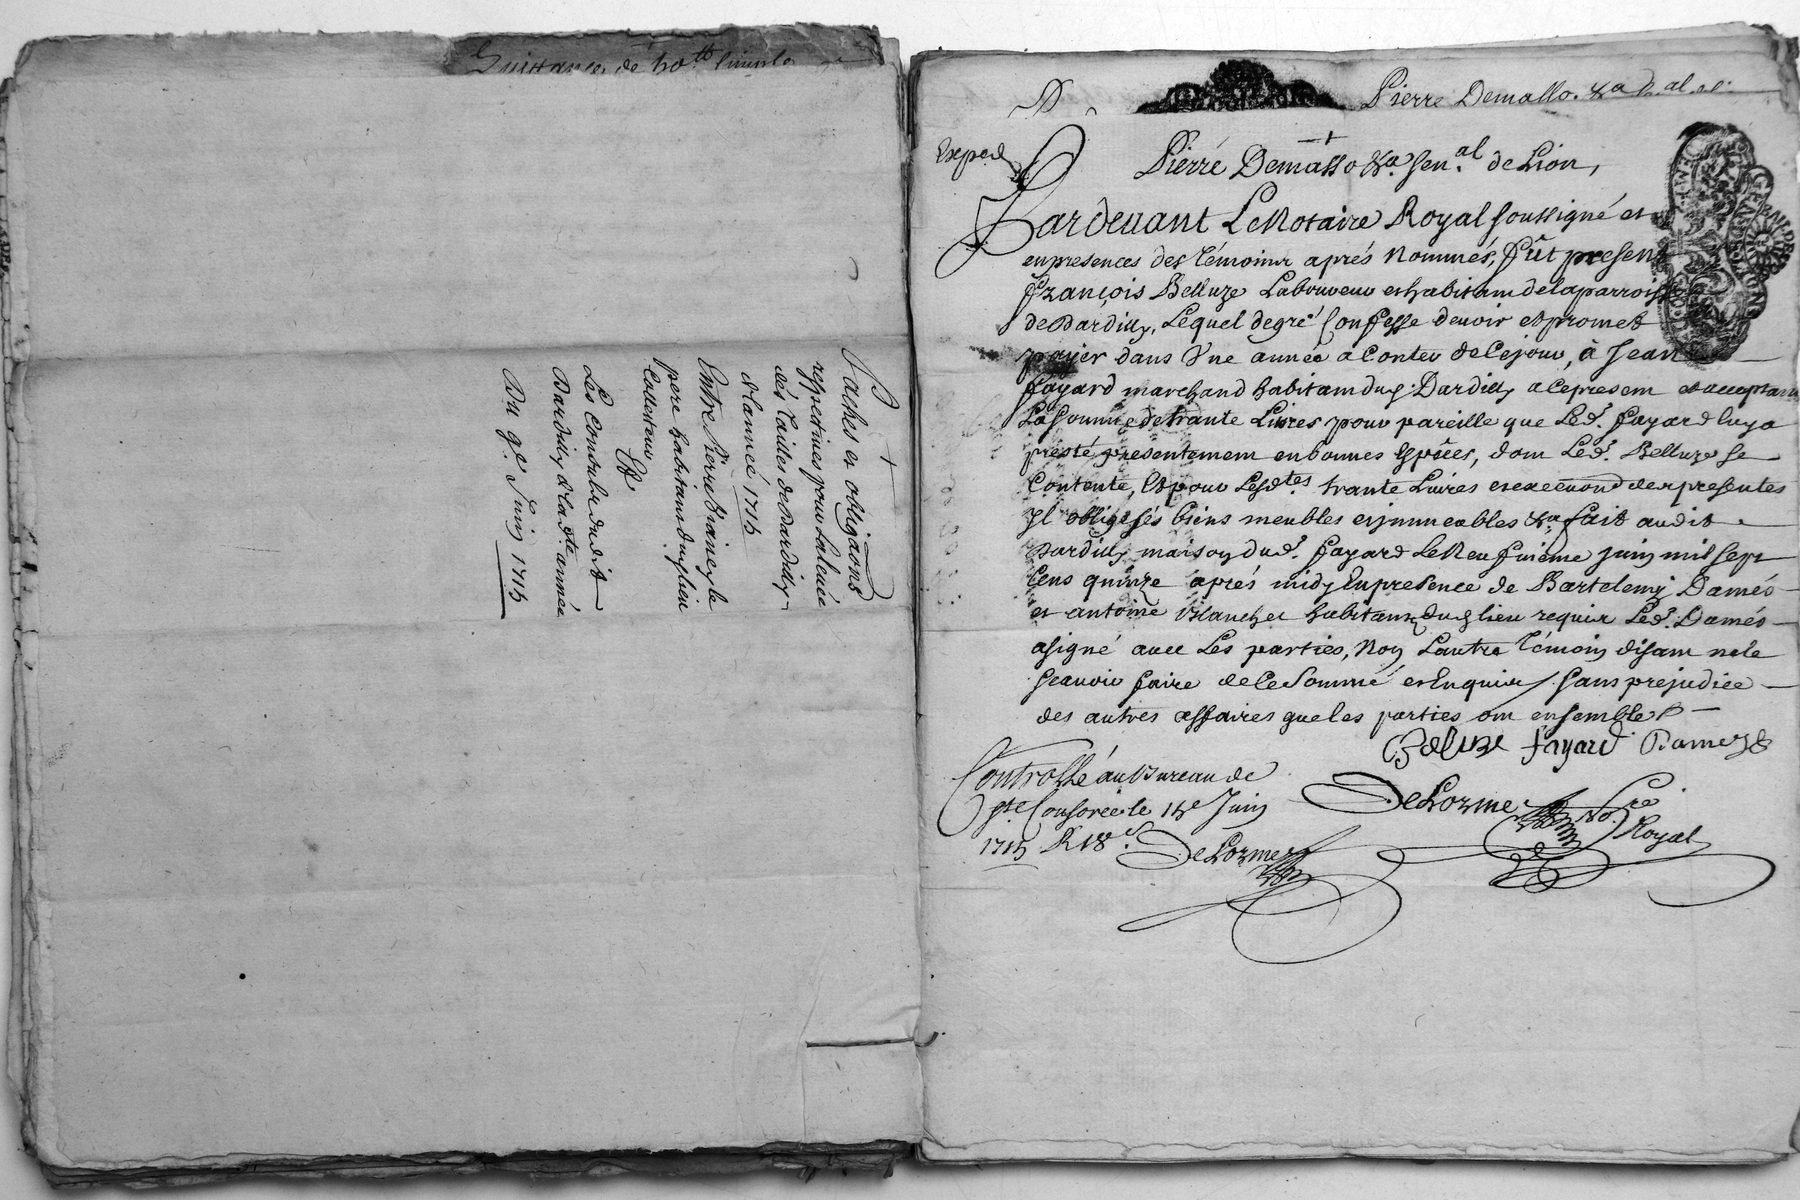 Quittance de 50tt simple
Paches et obligaons
respectives pour la levée
dés Tailles de Dardilly
de lannée 1715
Entre Pierre Briancy le
pere habitant dud lieu
Collecteur
Et
Les Consuls dudit
Dardilly de lad.te année
Du 9e Juin 1715
Pierre Demasso &a
Exped
Pierre Demasso &a Sen.al de Lion,
Pardevant Le Notaire Royal soussigné et
en presences des Témoins aprés Nommés, fût present
françois Belluze Laboureur et habitant de la parroisse
de Dardilly, Lequel de gré Confesse devoir et promet
payer dans Une année a Conter de Cejour, à Jean
fayard marchand habitant dud. Dardilly a ce present et acceptant
La Somme de trante Livres pour pareille que Led. fayard luy a
presté presentement en bonnes Espêces, dont Led. Belluze se
Contente, Et pour Lesd.tes trante Livres et execuon des presentes
Il oblige sés biens meubles et immeubles &a fait audit
Dardilly maison dud. fayard Le Neufuiéme juin mil sept
Cens quinze aprés midy En presence de Bartelemy Damés
et antoine Blanchet habitants dud lieu requis Led. Damés
a signé avec Les parties, Non Lautre Témoin disant ne le
Scavoir faire de Ce Sommé et Enquis / Sans prejudice
des autres affaires que les parties ont ensemble /
Beluze fayard Damez
Controllé au Bureau de
Ste Consorce le 15e Juin
1715 R 18s.
DeLorme
DeLorme No.re
Royal